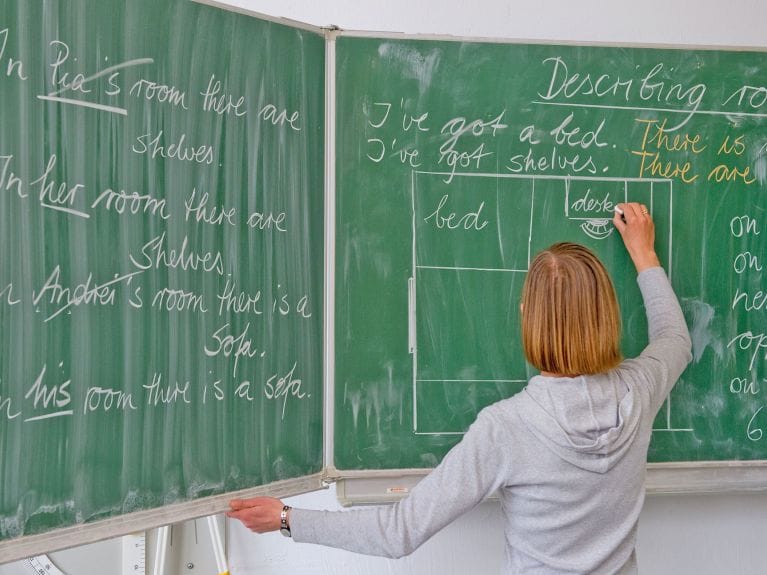 In Pia's room there are
shelves.
In her room there are
shelves.
Andrei's room there is a
sofa.
his room there is a sofa.
Describing
I've got a bed.
I've got shelves.
There is
There are
bed
desk
on
on
on
6